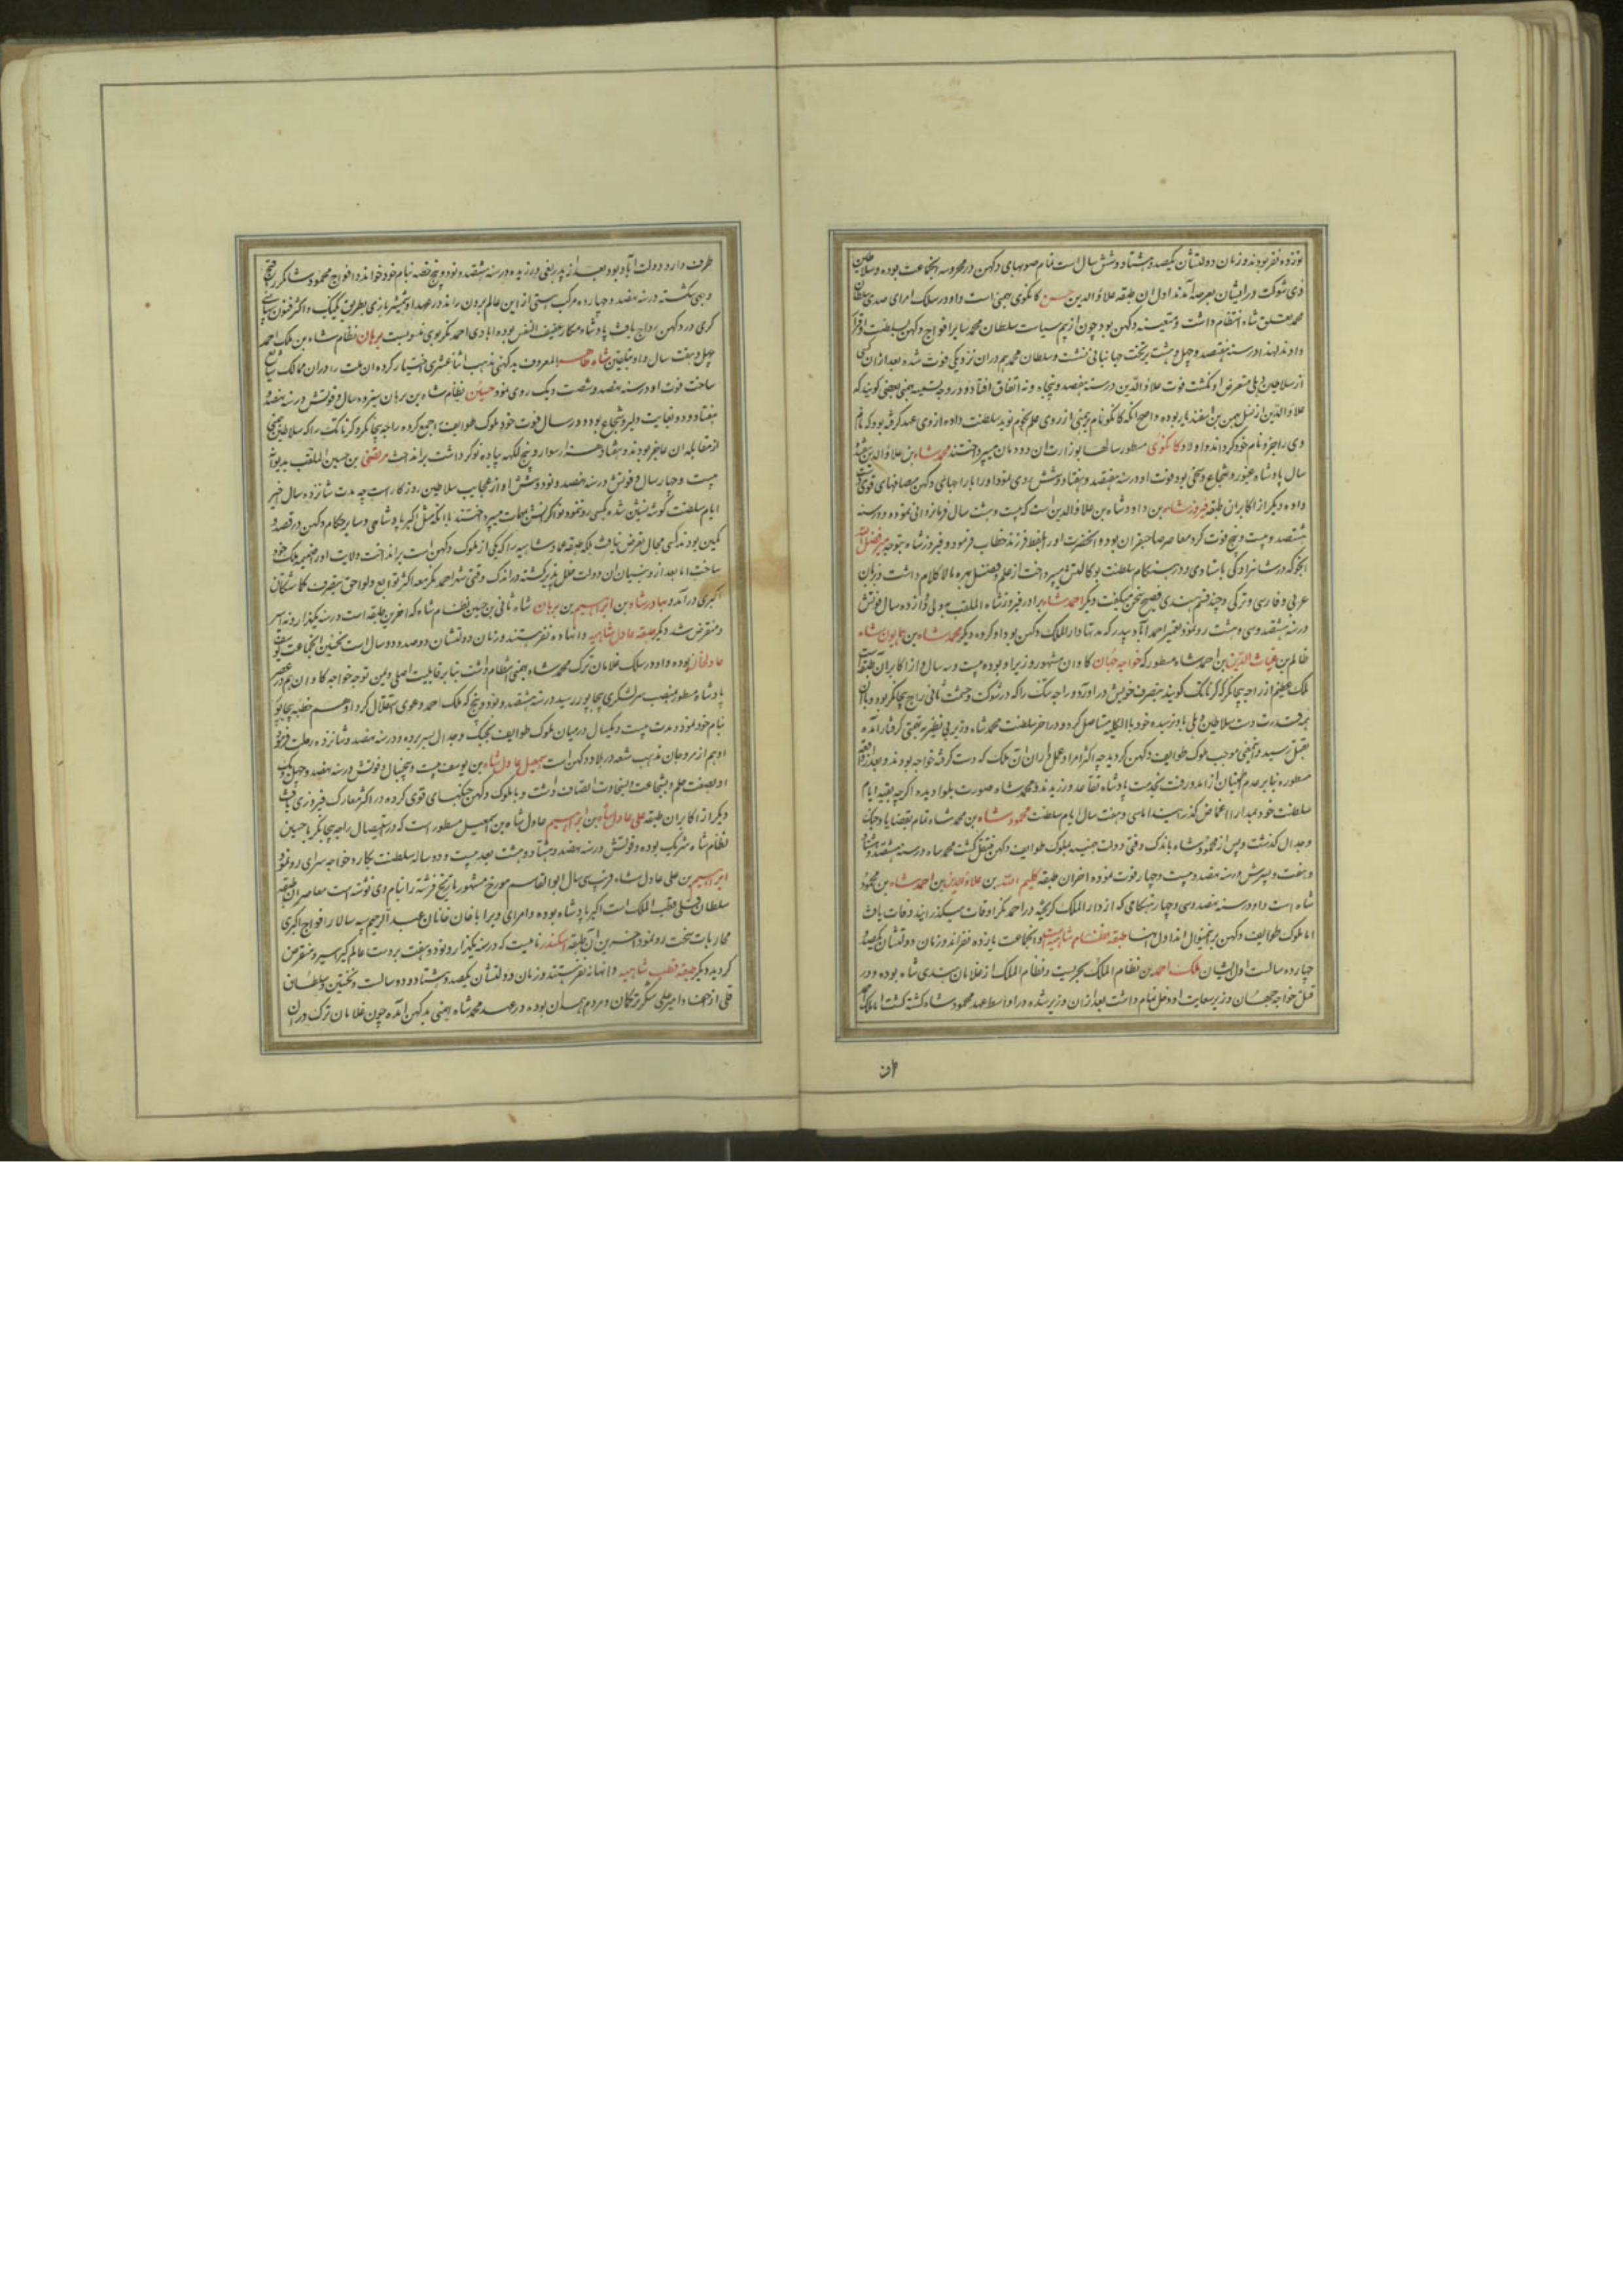 نوزده نفر بودند و زمان دولتشان یکصد و هشتاد و شش سال است تمام صوبهای دکهن در محروسه انجماعت بوده و سلاطین
ذی شوکت در ایشان بعرصه آمدند اول ان طبقه علاؤ الدین حسن کانکوی بهمنی است و او در سلک امرای صدی سلطان
محمد تغلق شاه انتظام داشت و متعینه دکهن بود چون از بیم سیاست سلطان محمد سایر افواج دکهن بسلطنت او قرار
دادند لهذا در سنه هفتصد و چهل و هشت بر تخت جهانبانی نشست و سلطان محمد هم دران نزدیکی فوت شده بعد ازان کسی
از سلاطین دهلی متعرض او نکشت فوت علاؤ الدین در سنه هفتصد و پنجاه و نه اتفاق افتاد و در وجه تسمیه بهمنی بعضی کویند که
علاؤ الدین از نسل بهمن بن اسفندیار بوده و اصح انکه کانکو نام برهمنی از روی علم نجوم نوید سلطنت داده از وی عهد کرفته بود که نام
وی را جزو نام خود کرداند و اولاد کانکوی مسطور سالها بوزارت ان دودمان میپرداختند محمد شاه بن علاؤ الدین
سال پادشاه غیور و شجاع و سخی بود فوت او در سنه هفتصد و هفتاد و شش روی نمود او را با راجهای دکهن مصافهای قوی
داده دیکر از اکابران طبقه فیروز شاه بن داود شاه بن علاؤ الدین است که بیست و هشت سال فرمانروائی نموده و در سنه
هشتصد و بیست و پنج فوت کرد معاصر صاحبقران بود و انحضرت او را بلفظ فرزند خطاب فرمود و فیروز شاه بتوجه میر فضل الله
انجو که در شاهزادکی باستادی و در هنکام سلطنت بوکالتش میپرداخت از علم و فضل بهره مالا کلام داشت و بزبان
عربی و فارسی و ترکی و چند قسم هندی فصیح سخن میکفت دیکر احمد شاه برادر فیروز شاه الملقب بولی دوازده سال فوتش
در سنه هشتصد و سی و هشت رو نمود تعمیر احمد آباد بیدر که مدتها دار الملک دکهن بود او کرده دیکر محمد شاه بن همایون شاه
ظالم بن غیاث الدین بن احمد شاه مسطور که خواجه جهان کاوان مشهور وزیر او بوده بیست و سه سال و از اکابران طبقه است
ملک عظیم از راجه بیجانکر که کرناتک کویند بتصرف خویش دراورد و راجه سنک را که در شوکت و حشمت ثانی راج بیجانکر بود و باان
همه قدرت دست سلاطین دهلی باو نرسیده خود بالکلیه مستاصل کرد و در اخر سلطنت محمد شاه وزیر بی نظیر به تهمتی کرفتار آمده
بقتل رسید و اینمعنی موجب ملوک طوایف دکهن کردید چه اکثر امرا و عمل داران ان ملک که دست کرفته خواجه بودند و بعد از واقعه
مسطوره بنابر عدم اطمینان از امد و رفت بخدمت پادشاه تقاعد ورزیدند و محمد شاه صورت بلوا دیده اکرچه بقیه ایام
سلطنت خود بمدارا و اغماض کذرانید اما سی و هفت سال ایام سلطنت محمود شاه بن محمد شاه تمام بقضایا و جنک
و جدال کذشت و پس از محمود شاه باندک وقتی دولت بهمنیه بملوک طوایف دکهن منتقل کشت محمد شاه در سنه هشتصد و هشتاد
و هفت و پسرش در سنه نهصد و بیست و چهار فوت نموده اخران طبقه کلیم الله بن علاؤ الدین بن احمد شاه بن محمود
شاه است و او در سنه نهصد و سی و چهار هنکامی که از دار الملک کریخته در احمد نکر اوقات میکذرانید وفات یافت
اما ملوک طوایف دکهن برینمنوال اند اول انها طبقه نظام شاهیه است و انجماعت یازده نفر اند و زمان دولتشان یکصد و
چهارده سالست اول ایشان ملک احمد بن نظام الملک بحریست و نظام الملک از غلامان هندی شاه بوده و در
قتل خواجه جهان وزیر سعایت او دخل تمام داشت بعد ازان وزیر شده در اواسط عهد محمود شاه کشته کشت اما ملک احمد
طرف دار دولت آباد بود بعد از پدر یاغی ورزیده در سنه هشتصد و نود و پنج خطبه بنام خود خواند و افواج محمود شاه مکرر رفتند
و بهی نکشته در سنه نهصد و چهارده مرکب هستی از این عالم برون راند در عهد او شمشیر بازی بطریق یکیک و اکثر فنون سپاهی
کری در دکهن رواج یافت پادشاه متکار عفیف النفس بوده ابادی احمد نکر بوی منسوبست برهان نظام شاه بن ملک احمد
چهل و هفت سال و او بتلقین شاه طاهر المعروف بدکهنی مذهب اثناعشری اختیار کرده ان ملت را دران ممالک شایع
ساخت فوت او در سنه نهصد و شصت و یک روی نمود حسین نظام شاه بن برهان سیزده سال و فوتش در سنه نهصد و
هفتاد و دو بغایت دلیر و شجاع بوده و در سال فوت خود ملوک طوایف را جمع کرده راجه بیجانکر و کرناتک را که سلاطین بهمنیه
از مقابله ان عاجز بودند و هفتاد هزار سوار و پنج لکهه پیاده نوکر داشت برانداخت مرتضی بن حسین الملقب بدیوانه
بیست و چهار سال و فوتش در سنه نهصد و نود و شش او از عجایب سلاطین روزکار است چه مدت شانزده سال اخیر
ایام سلطنت کوشه نشین شده بکسی رو ننمود نوکرانش بمهمات میپرداختند باانکه مثل اکبر پادشاهی و سایر حکام دکهن در قصد و
کمین بودند کسی مجال تعرض نیافت بلکه طبقه عماد شاهیه را که یکی از ملوک دکهن است برانداخت ولایت او را ضمیمه ملک خود
ساخت اما بعد از و بنیان ان دولت خلل پذیر کشته در اندک وقتی شهر احمد نکر معه اکثر توابع و لواحق بتصرف کماشتکان
اکبری درآمد و بهادر شاه بن ابراهیم بن برهان شاه ثانی بن حسین نظام شاه که اخرین طبقه است در سنه یکهزار و نه اسیر
و منقرض شد دیکر طبقه عادل شاهیه و انها ده نفر هستند و زمان دولتشان دو صد و دو سال است نخستین انجماعت یوسف
عادلخان بوده و او در سلک غلامان ترک محمد شاه بهمنی انتظام داشت بنابر قابلیت اصلی و یمن توجه خواجه کاوان هم در عصر
پادشاه مسطور بمنصب سر لشکری بیجاپور رسید در سنه هشتصد و نود و پنج که ملک احمد دعوی استقلال کرد او هم خطبه بیجاپور
بنام خود نمود و مدت بیست و یکسال درمیان ملوک طوایف بجنک و جدال بسر برده و در سنه نهصد و شانزده رحلت فرمود
او هم از مروجان مذهب شیعه در بلاد دکهن است اسمعیل عادل شاه بن یوسف بیست و پنجسال و فوتش در سنه نهصد و چهل و یک
او بصفت حلم و شجاعت و سخاوت اتصاف داشت و با ملوک دکهن جنکهای قوی کرده در اکثر معارک فیروزی یافت
دیکر از اکابران طبقه علی عادل شاه بن ابراهیم عادل شاه بن اسمعیل مسطور است که در استیصال راجه بیجانکر با حسین
نظام شاه شریک بوده و فوتش در سنه نهصد و هشتاد و هشت بعد بیست و دو سال سلطنت بکار د خواجه سرای رو نمود
ابراهیم بن علی عادل شاه قریب سی سال ابو القاسم مورخ مشهور تاریخ فرشته را بنام وی نوشته است معاصران طبقه
سلطان قلی قطب الملک است اکبر پادشاه بوده و امرای ویرا با خان خانان عبد الرحیم سپه سالار افواج اکبری
محاربات سخت رو نمود اخرین ان طبقه اسکندر نامیست که در سنه یکهزار و نود و هفت بر دست عالمکیر اسیر و منقرض
کردید دیکر طبقه قطب شاهیه و انها نه نفر هستند و زمان دولتشان یکصد و هشتاد و دو سالست و نخستین سلطان
قلی از امرا و امیر علی شکر ترکمان و مردم همدان بوده و در عهد محمد شاه بهمنی بدکهن آمده چون غلامان ترک دران